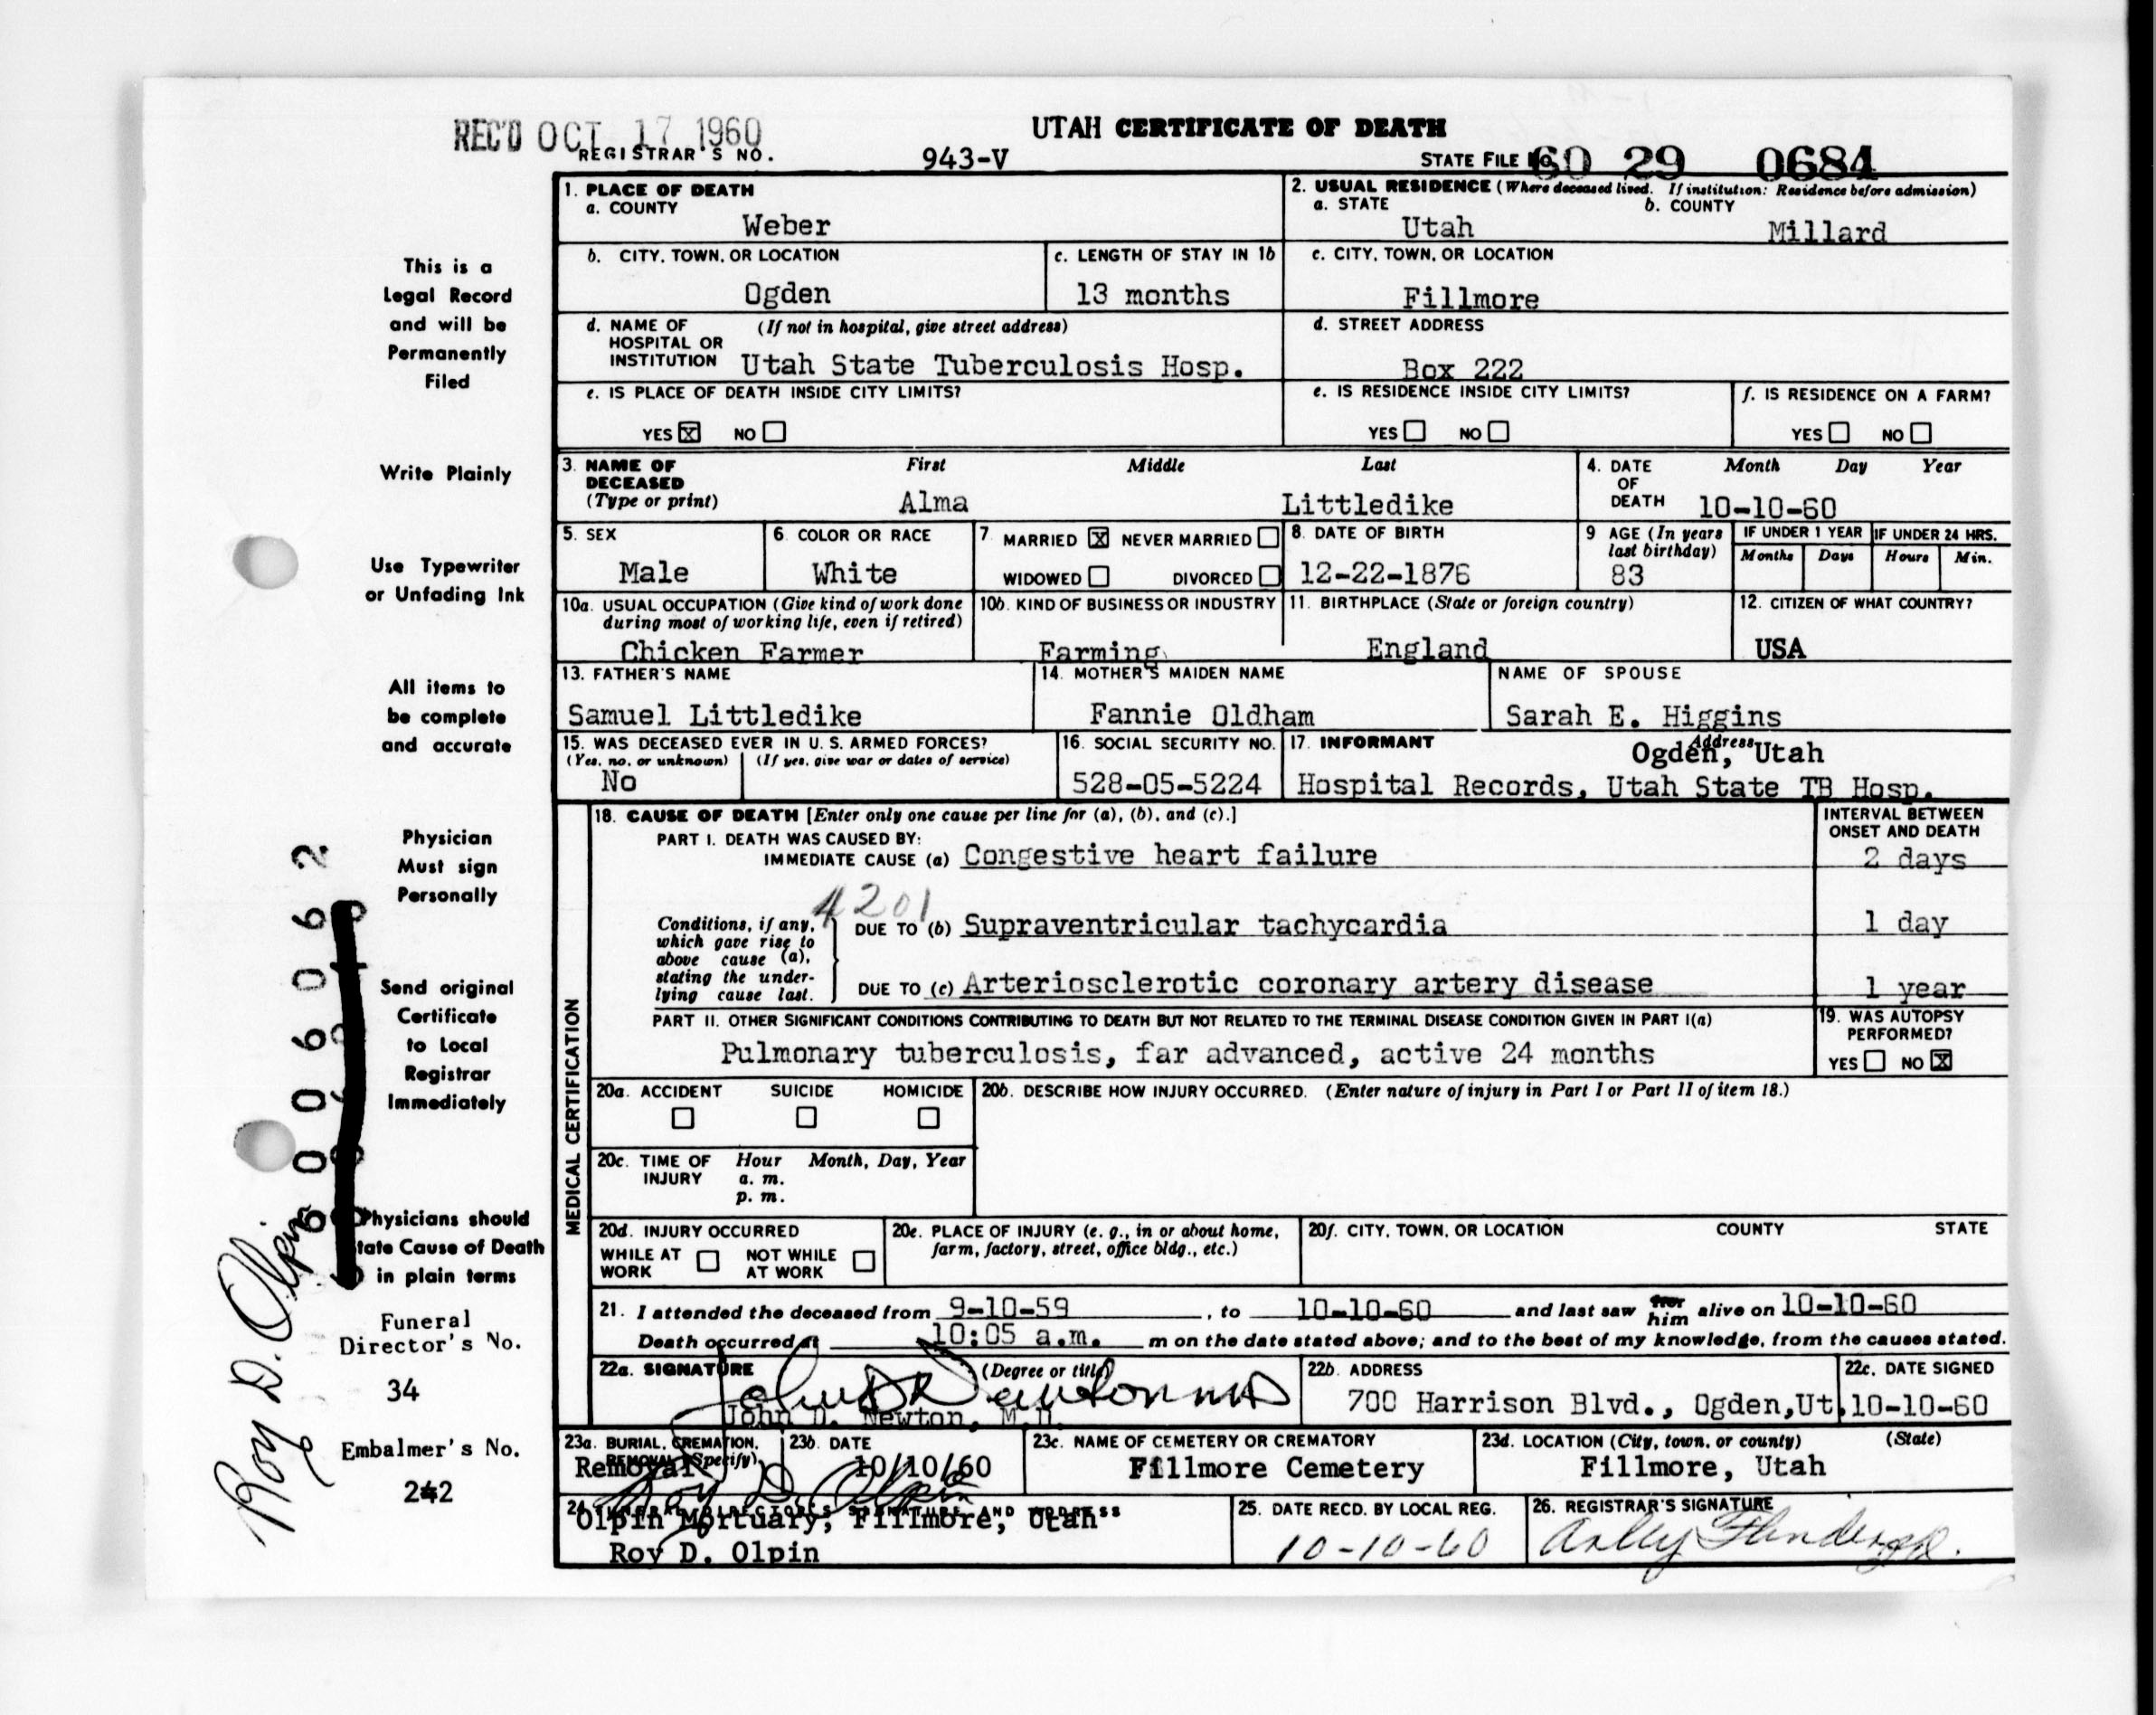 REC'D OCT 17 1960
UTAH CERTIFICATE OF DEATH
REGISTRAR'S NO. 943-V STATE FILE NO. 60 29 0684
1. PLACE OF DEATH
a. COUNTY
Weber
2. USUAL RESIDENCE (Where deceased lived. If institution: Residence before admission)
a. STATE b. COUNTY
Utah Millard
b. CITY, TOWN, OR LOCATION
Ogden
c. LENGTH OF STAY IN 1b
13 months
c. CITY, TOWN, OR LOCATION
Fillmore
d. NAME OF (If not in hospital, give street address)
HOSPITAL OR
INSTITUTION Utah State Tuberculosis Hosp.
d. STREET ADDRESS
Box 222
e. IS PLACE OF DEATH INSIDE CITY LIMITS?
YES X NO
e. IS RESIDENCE INSIDE CITY LIMITS?
YES NO
f. IS RESIDENCE ON A FARM?
YES NO
3. NAME OF First Middle Last
DECEASED
(Type or print) Alma Littledike
4. DATE Month Day Year
OF
DEATH 10-10-60
5. SEX
Male
6. COLOR OR RACE
White
7. MARRIED X NEVER MARRIED
WIDOWED DIVORCED
8. DATE OF BIRTH
12-22-1876
9 AGE (In years
last birthday)
83
IF UNDER 1 YEAR
Months Days
IF UNDER 24 HRS.
Hours Min.
10a. USUAL OCCUPATION (Give kind of work done
during most of working life, even if retired)
Chicken Farmer
10b. KIND OF BUSINESS OR INDUSTRY
Farming
11. BIRTHPLACE (State or foreign country)
England
12. CITIZEN OF WHAT COUNTRY?
USA
13. FATHER'S NAME
Samuel Littledike
14. MOTHER'S MAIDEN NAME
Fannie Oldham
NAME OF SPOUSE
Sarah E. Higgins
15. WAS DECEASED EVER IN U. S. ARMED FORCES?
(Yes, no, or unknown) (If yes, give war or dates of service)
No
16. SOCIAL SECURITY NO.
528-05-5224
17. INFORMANT Address
Ogden, Utah
Hospital Records, Utah State TB Hosp.
MEDICAL CERTIFICATION
18. CAUSE OF DEATH [Enter only one cause per line for (a), (b), and (c).]
INTERVAL BETWEEN
ONSET AND DEATH
PART I. DEATH WAS CAUSED BY:
IMMEDIATE CAUSE (a) Congestive heart failure 2 days
4201
Conditions, if any,
which gave rise to
above cause (a),
stating the under-
lying cause last.
DUE TO (b) Supraventricular tachycardia 1 day
DUE TO (c) Arteriosclerotic coronary artery disease 1 year
PART II. OTHER SIGNIFICANT CONDITIONS CONTRIBUTING TO DEATH BUT NOT RELATED TO THE TERMINAL DISEASE CONDITION GIVEN IN PART I(a)
Pulmonary tuberculosis, far advanced, active 24 months
19. WAS AUTOPSY
PERFORMED?
YES NO X
20a. ACCIDENT SUICIDE HOMICIDE
20b. DESCRIBE HOW INJURY OCCURRED. (Enter nature of injury in Part I or Part II of item 18.)
20c. TIME OF Hour Month, Day, Year
INJURY a. m.
p. m.
20d. INJURY OCCURRED
WHILE AT NOT WHILE
WORK AT WORK
20e. PLACE OF INJURY (e. g., in or about home,
farm, factory, street, office bldg., etc.)
20f. CITY, TOWN, OR LOCATION COUNTY STATE
21. I attended the deceased from 9-10-59, to 10-10-60 and last saw her him alive on 10-10-60
Death occurred at 10:05 a.m. m on the date stated above; and to the best of my knowledge, from the causes stated.
22a. SIGNATURE (Degree or title)
John D. Newton, M.D.
22b. ADDRESS
700 Harrison Blvd., Ogden, Ut.
22c. DATE SIGNED
10-10-60
23a. BURIAL, CREMATION,
REMOVAL (Specify)
Removal
23b. DATE
10/10/60
23c. NAME OF CEMETERY OR CREMATORY
Fillmore Cemetery
23d. LOCATION (City, town, or county) (State)
Fillmore, Utah
Roy D. Olpin
24. FUNERAL DIRECTOR'S SIGNATURE AND ADDRESS
Olpin Mortuary, Fillmore, Utah
Roy D. Olpin
25. DATE RECD. BY LOCAL REG.
10-10-60
26. REGISTRAR'S SIGNATURE
This is a
Legal Record
and will be
Permanently
Filed
Write Plainly
Use Typewriter
or Unfading Ink
All items to
be complete
and accurate
Physician
Must sign
Personally
Send original
Certificate
to Local
Registrar
Immediately
Physicians should
State Cause of Death
in plain terms
Funeral
Director's No.
34
Embalmer's No.
242
Roy D. Olpin
6006062